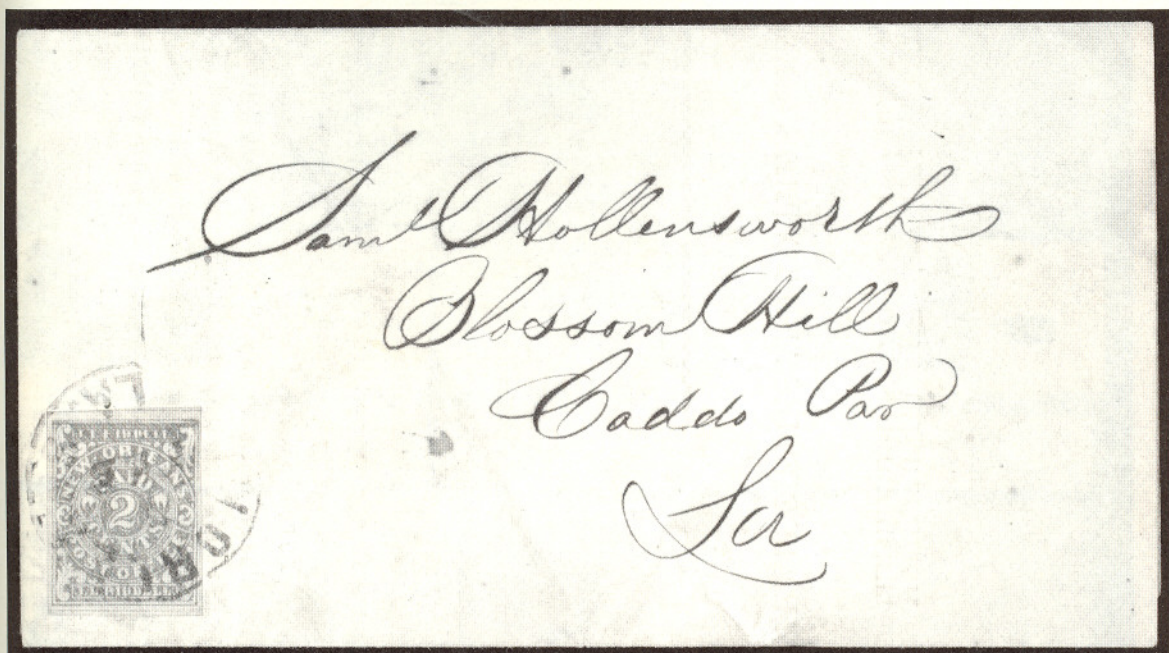 Saml Hollensworth
Blossom Hill
Caddo Par
La
J. L. RIDDELL
NEW ORLEANS
PAID
2
CENTS
POST OFFICE